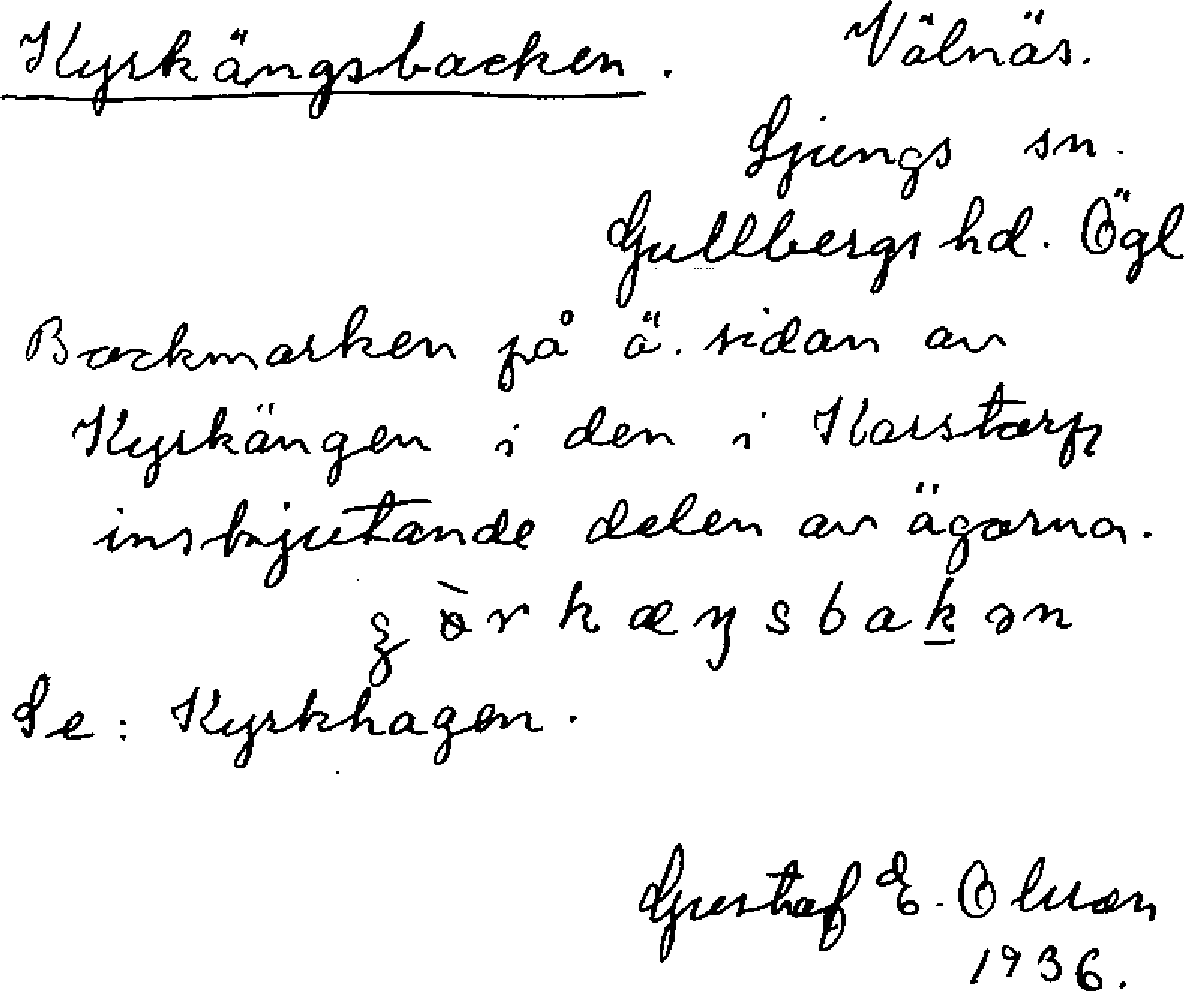 Kyrkängsbacken. Välnäs.
Ljungs sn.
Gullbergs hd. Ögl
Backmarken på ö. sidan av
Kyrkängen i den i Karstorp
inskjutande delen av ägorna.
Se: Kyrkhagen.
Gustaf E. Olsson
1936.